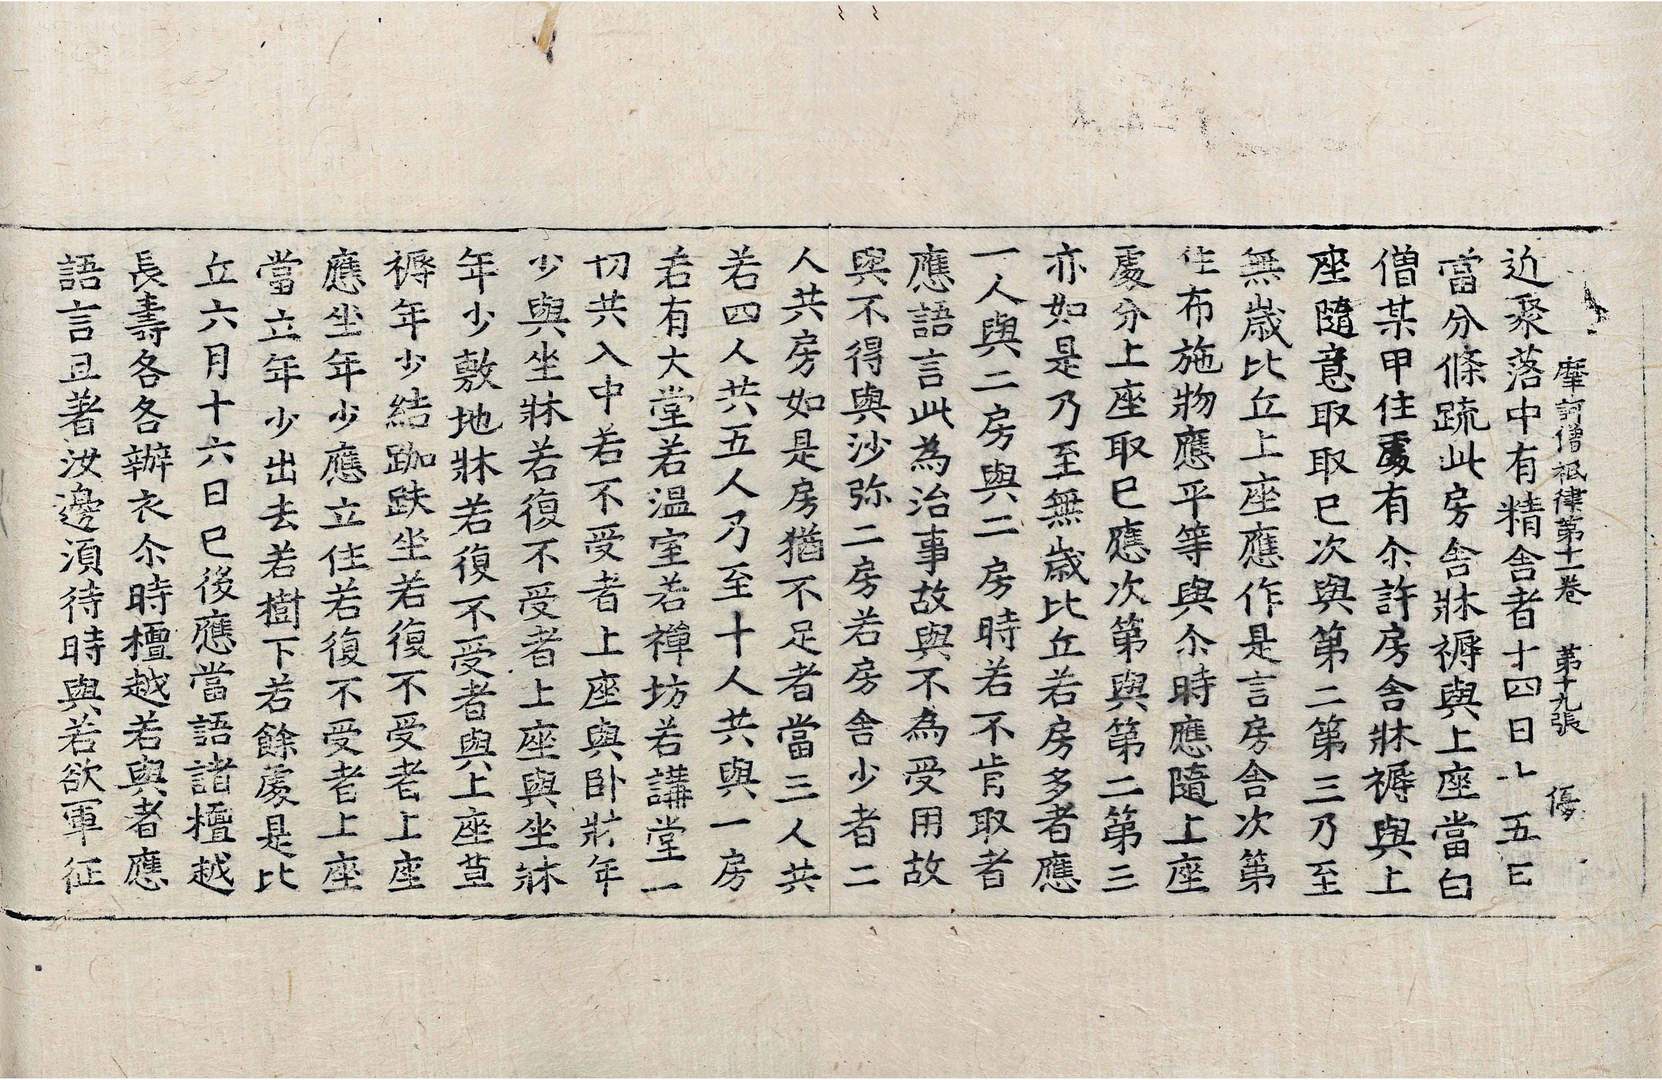 摩訶僧祇律第十一卷　第十九張　優
近聚落中有精舍者十四日十五日
當分條疏此房舍牀褥與上座當白
僧某甲住處有尒許房舍牀褥與上
座隨意取取已次與第二第三乃至
無歲比丘上座應作是言房舍次第
住布施物應平等與尒時應隨上座
處分上座取已應次第與第二第三
亦如是乃至無歲比丘若房多者應
一人與二房與二房時若不肯取者
應語言此為治事故與不為受用故
與不得與沙弥二房若房舍少者二
人共房如是房猶不足者當三人共
若四人共五人乃至十人共與一房
若有大堂若溫室若禪坊若講堂一
切共入中若不受者上座與卧牀年
少與坐牀若復不受者上座與坐牀
年少敷地牀若復不受者與上座草
褥年少結跏趺坐若復不受者上座
應坐年少應立住若復不受者上座
當立年少出去若樹下若餘處是比
丘六月十六日已後應當語諸檀越
長壽各各辦衣尒時檀越若與者應
語言且著汝邊須待時與若欲軍征